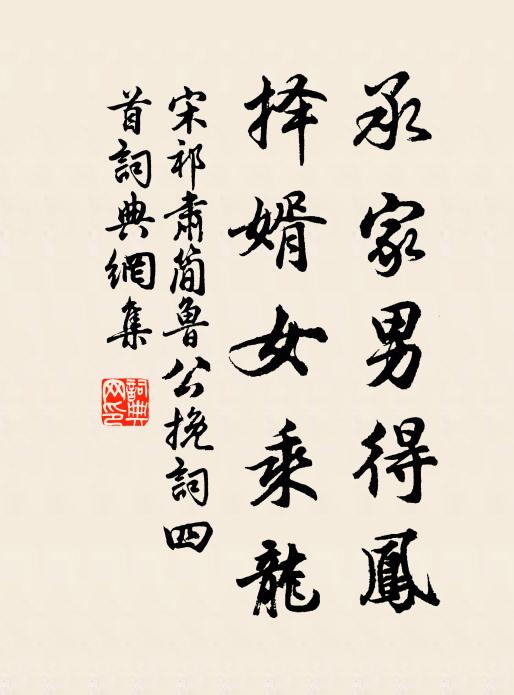 承家男得鳳
择婿女乘龍
宋祁肅簡魯公挽詞四
首詞典網集
詞典
网印